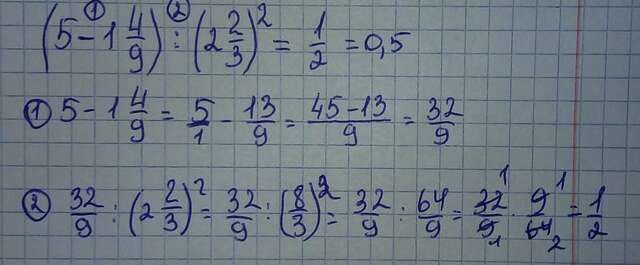 (5 - 1 4/9) : (2 2/3)² = 1/2 = 0,5
① 5 - 1 4/9 = 5/1 - 13/9 = (45-13)/9 = 32/9
② 32/9 : (2 2/3)² = 32/9 : (8/3)² = 32/9 : 64/9 = 32/9 · 9/64 = 1/2